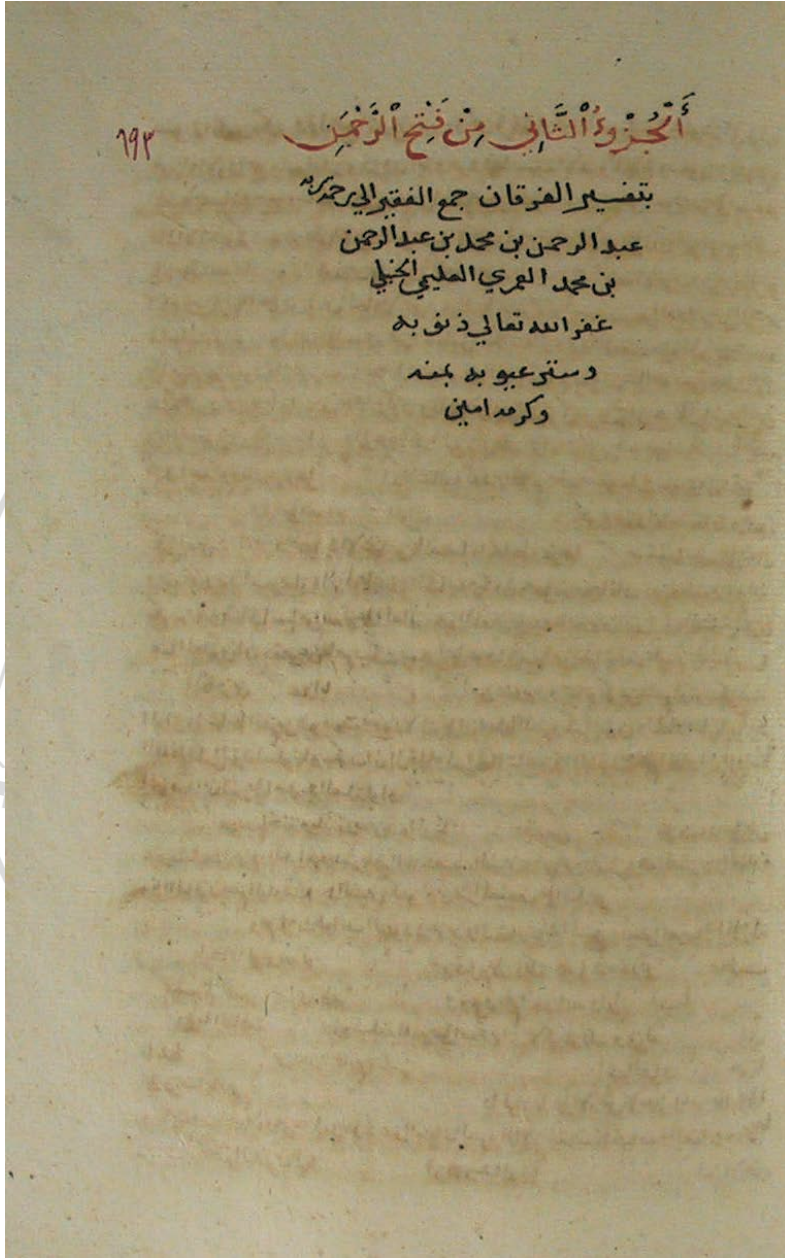 أَلْجُزْءُ الْثَّانِي مِنْ فَتِحْ الْرَّحْمَنِ ٦٩٣
بتفسير الفرقان جمع الفقير الي رحمة ربه
عبد الرحمن بن محمد بن عبد الرحمن
بن محمد العمري العليمي الحنبلي
غفر الله تعالي ذنوبه
وستر عيوبه بمنه
وكرمه امين